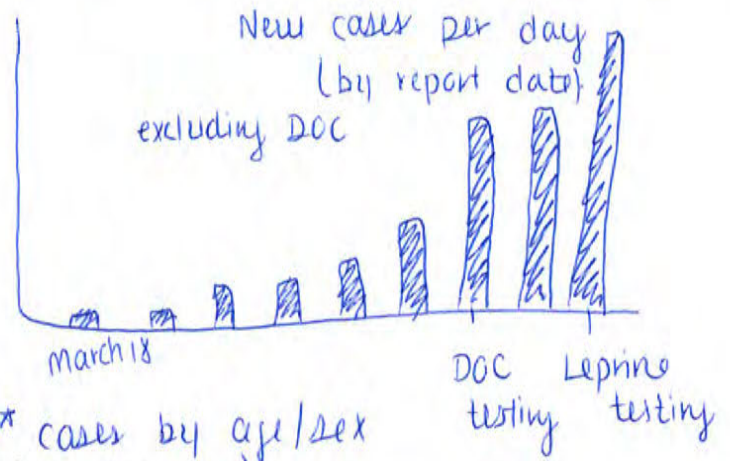 New cases per day
(by report date)
excluding DOC
March 18
DOC testing
Leprino testing
* cases by age/sex